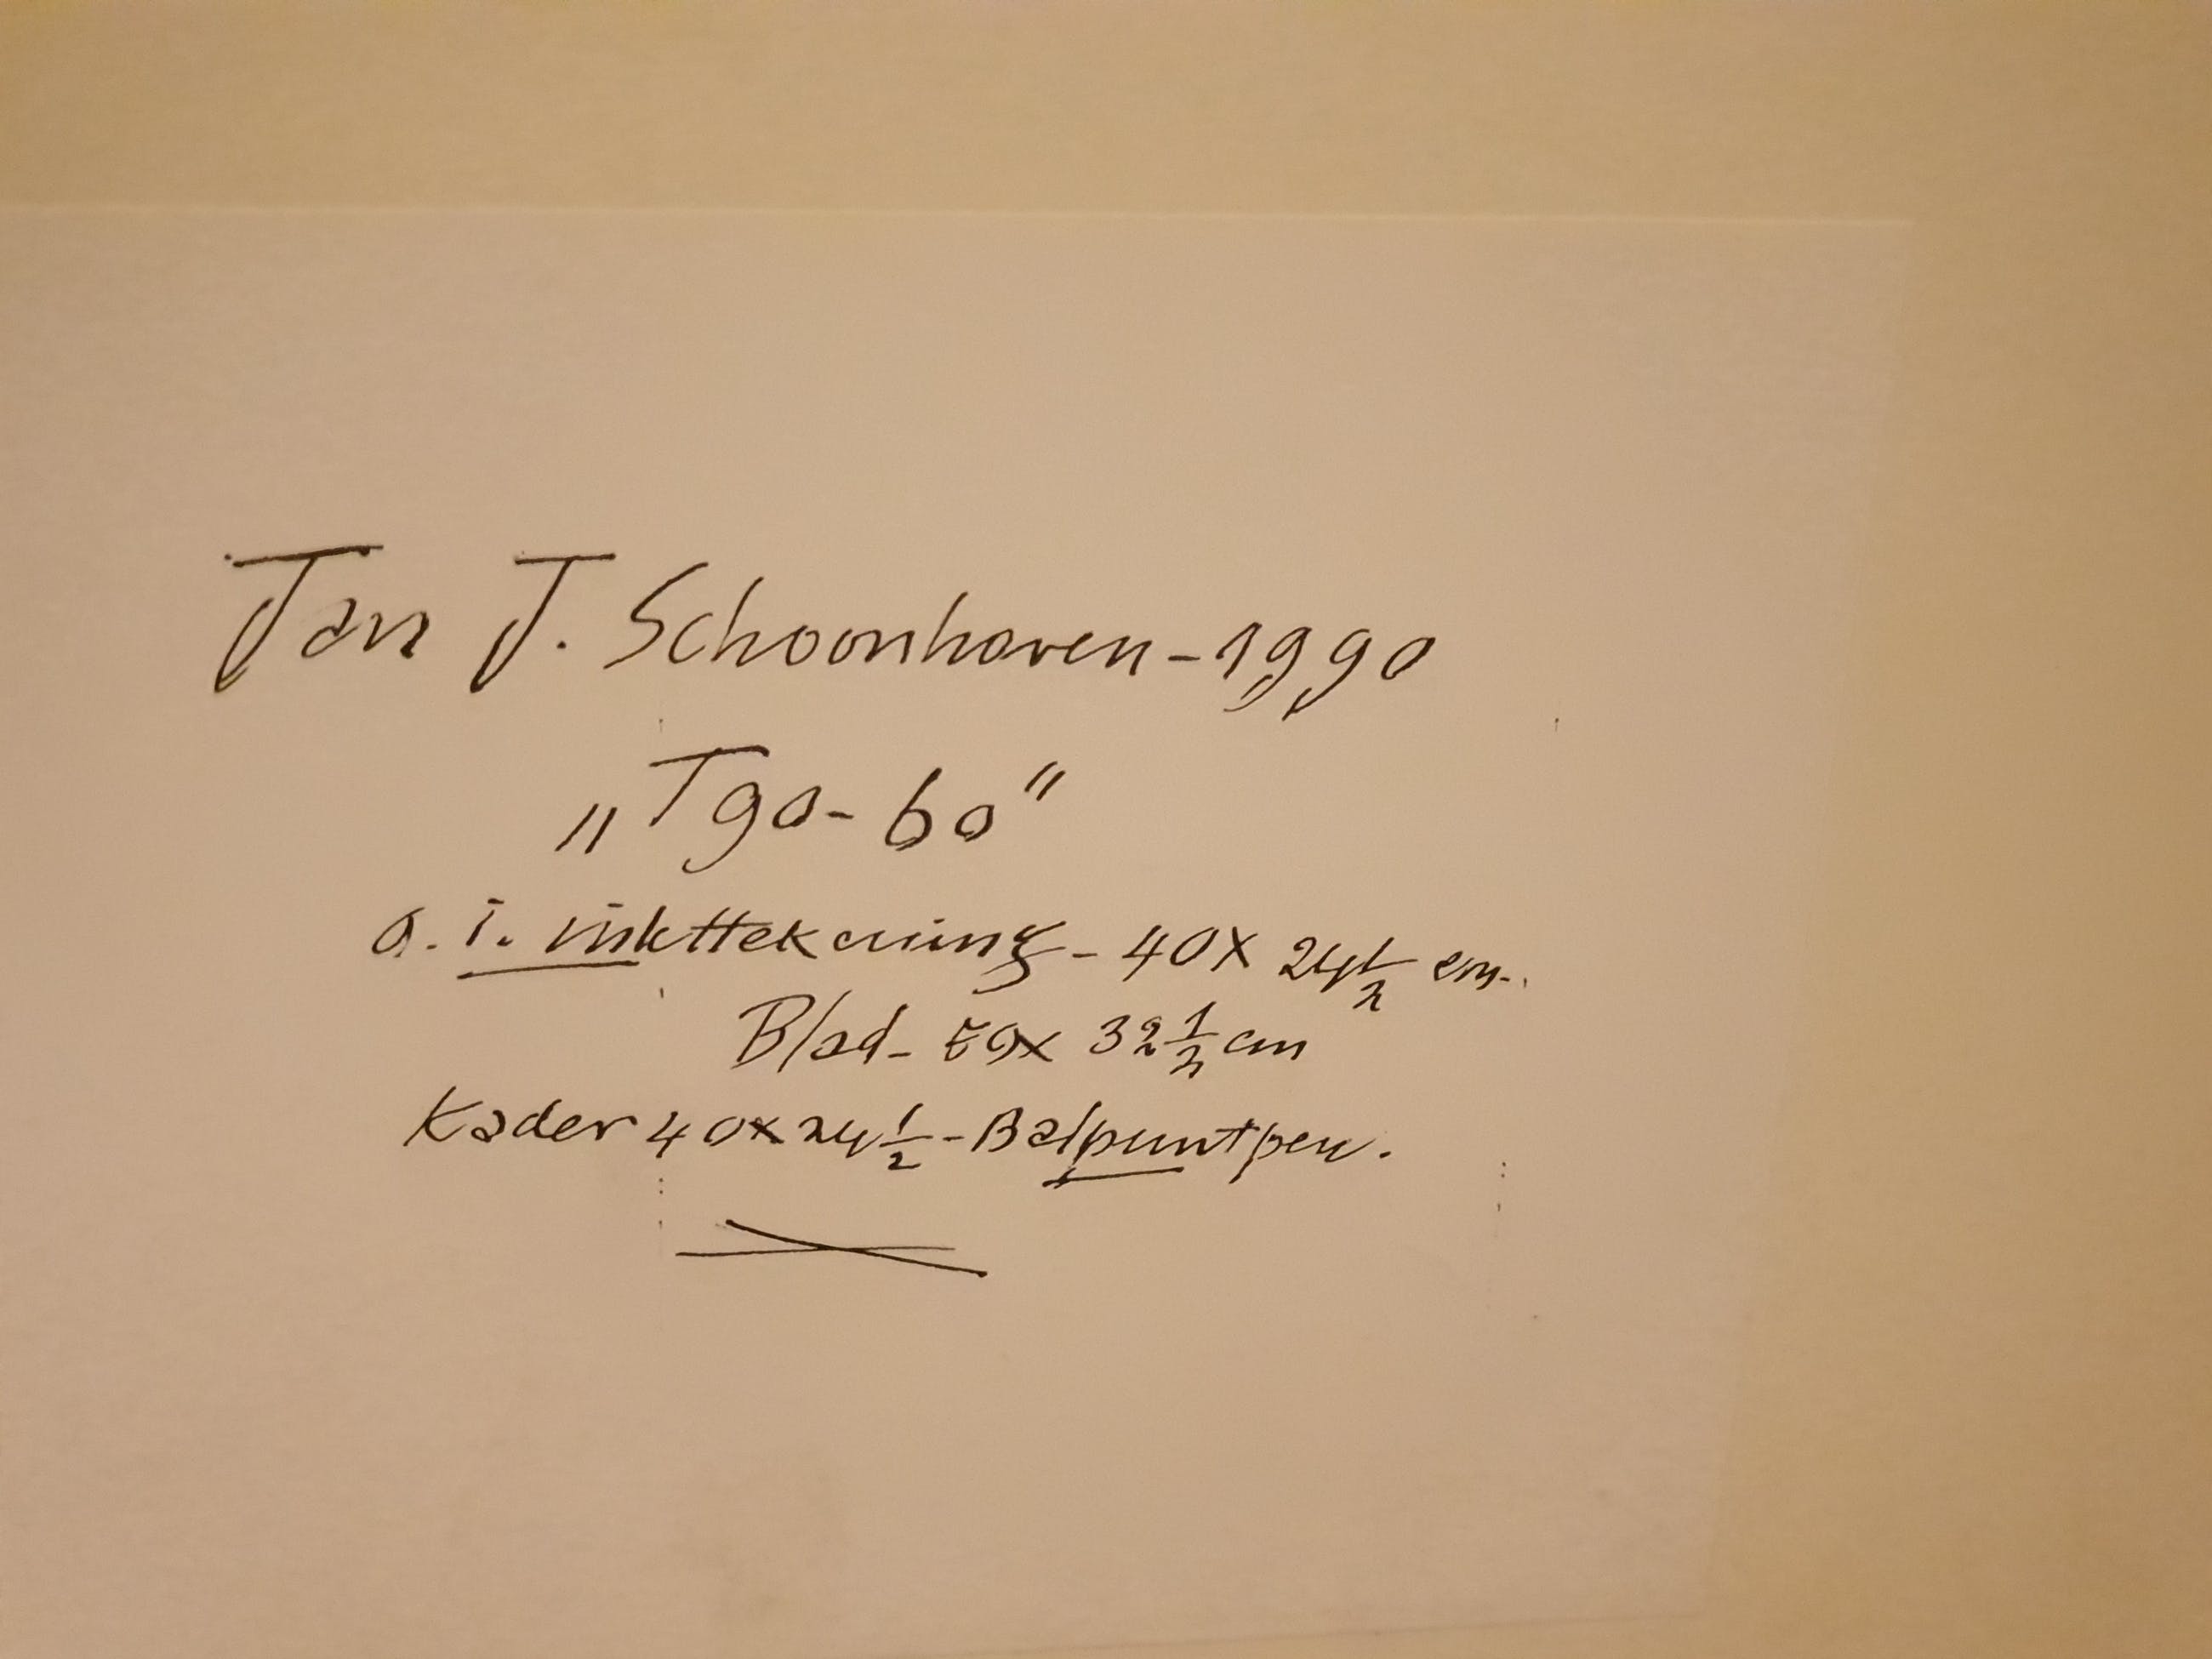 Jan J. Schoonhoven - 1990
„T90-60”
O.i. inkttekening - 40 x 24 1/2 cm.
Blad - 50 x 32 1/2 cm
Kader 40 x 24 1/2 - Balpuntpen.